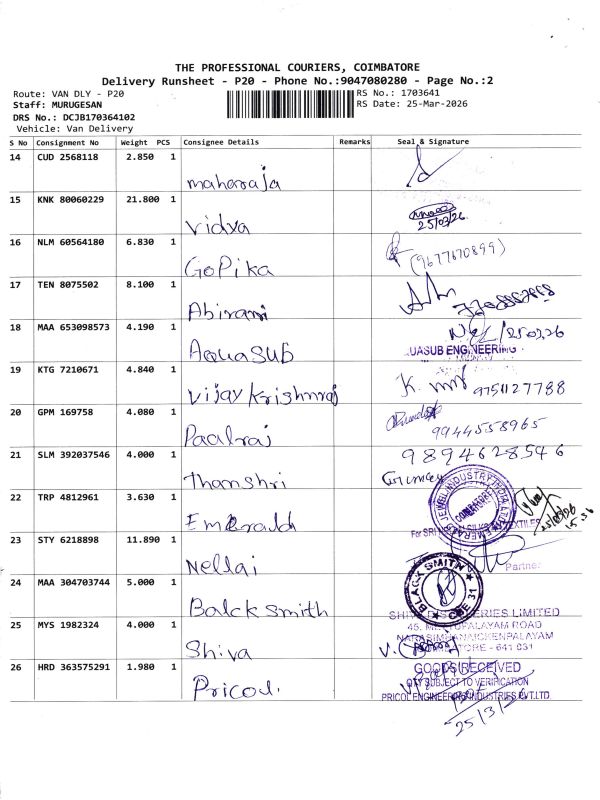 THE PROFESSIONAL COURIERS, COIMBATORE
Delivery Runsheet - P20 - Phone No.:9047080280 - Page No.:2
Route: VAN DLY - P20
Staff: MURUGESAN
DRS No.: DCJB170364102
Vehicle: Van Delivery
RS No.: 1703641
RS Date: 25-Mar-2026
S No Consignment No Weight PCS Consignee Details Remarks Seal & Signature
14 CUD 2568118 2.850 1
maharaja
15 KNK 80060229 21.800 1
Vidya
25/03/26
16 NLM 60564180 6.830 1
GoPika
(9677670899)
17 TEN 8075502 8.100 1
Abirami
18 MAA 653098573 4.190 1
AquaSub
UASUB ENGINEERING
19 KTG 7210671 4.840 1
Vijay Krishnraj
9751127788
20 GPM 169758 4.080 1
Paalraj
9944558965
21 SLM 392037546 4.000 1
Thamshri
9894628546
22 TRP 4812961 3.630 1
Emerald
23 STY 6218898 11.890 1
Nellai
Partner
24 MAA 304703744 5.000 1
Balcksmith
BLACK SMITH
CBE 31
25 MYS 1982324 4.000 1
Shiva
ERIES LIMITED
PALAYAM ROAD
NARASIMHANAICKENPALAYAM
TORE - 641 031
26 HRD 363575291 1.980 1
Pricol
GOODS RECEIVED
QTY SUBJECT TO VERIFICATION
PRICOL ENGINEERING INDUSTRIES PVT.LTD.
25/3/26